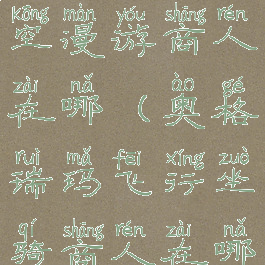 kōng màn yóu shāng rén
空漫游商人
zài nǎ ào gé
在哪（奥格
ruì mǎ fēi xíng zuò
瑞玛飞行坐
qí shāng rén zài nǎ
骑商人在哪